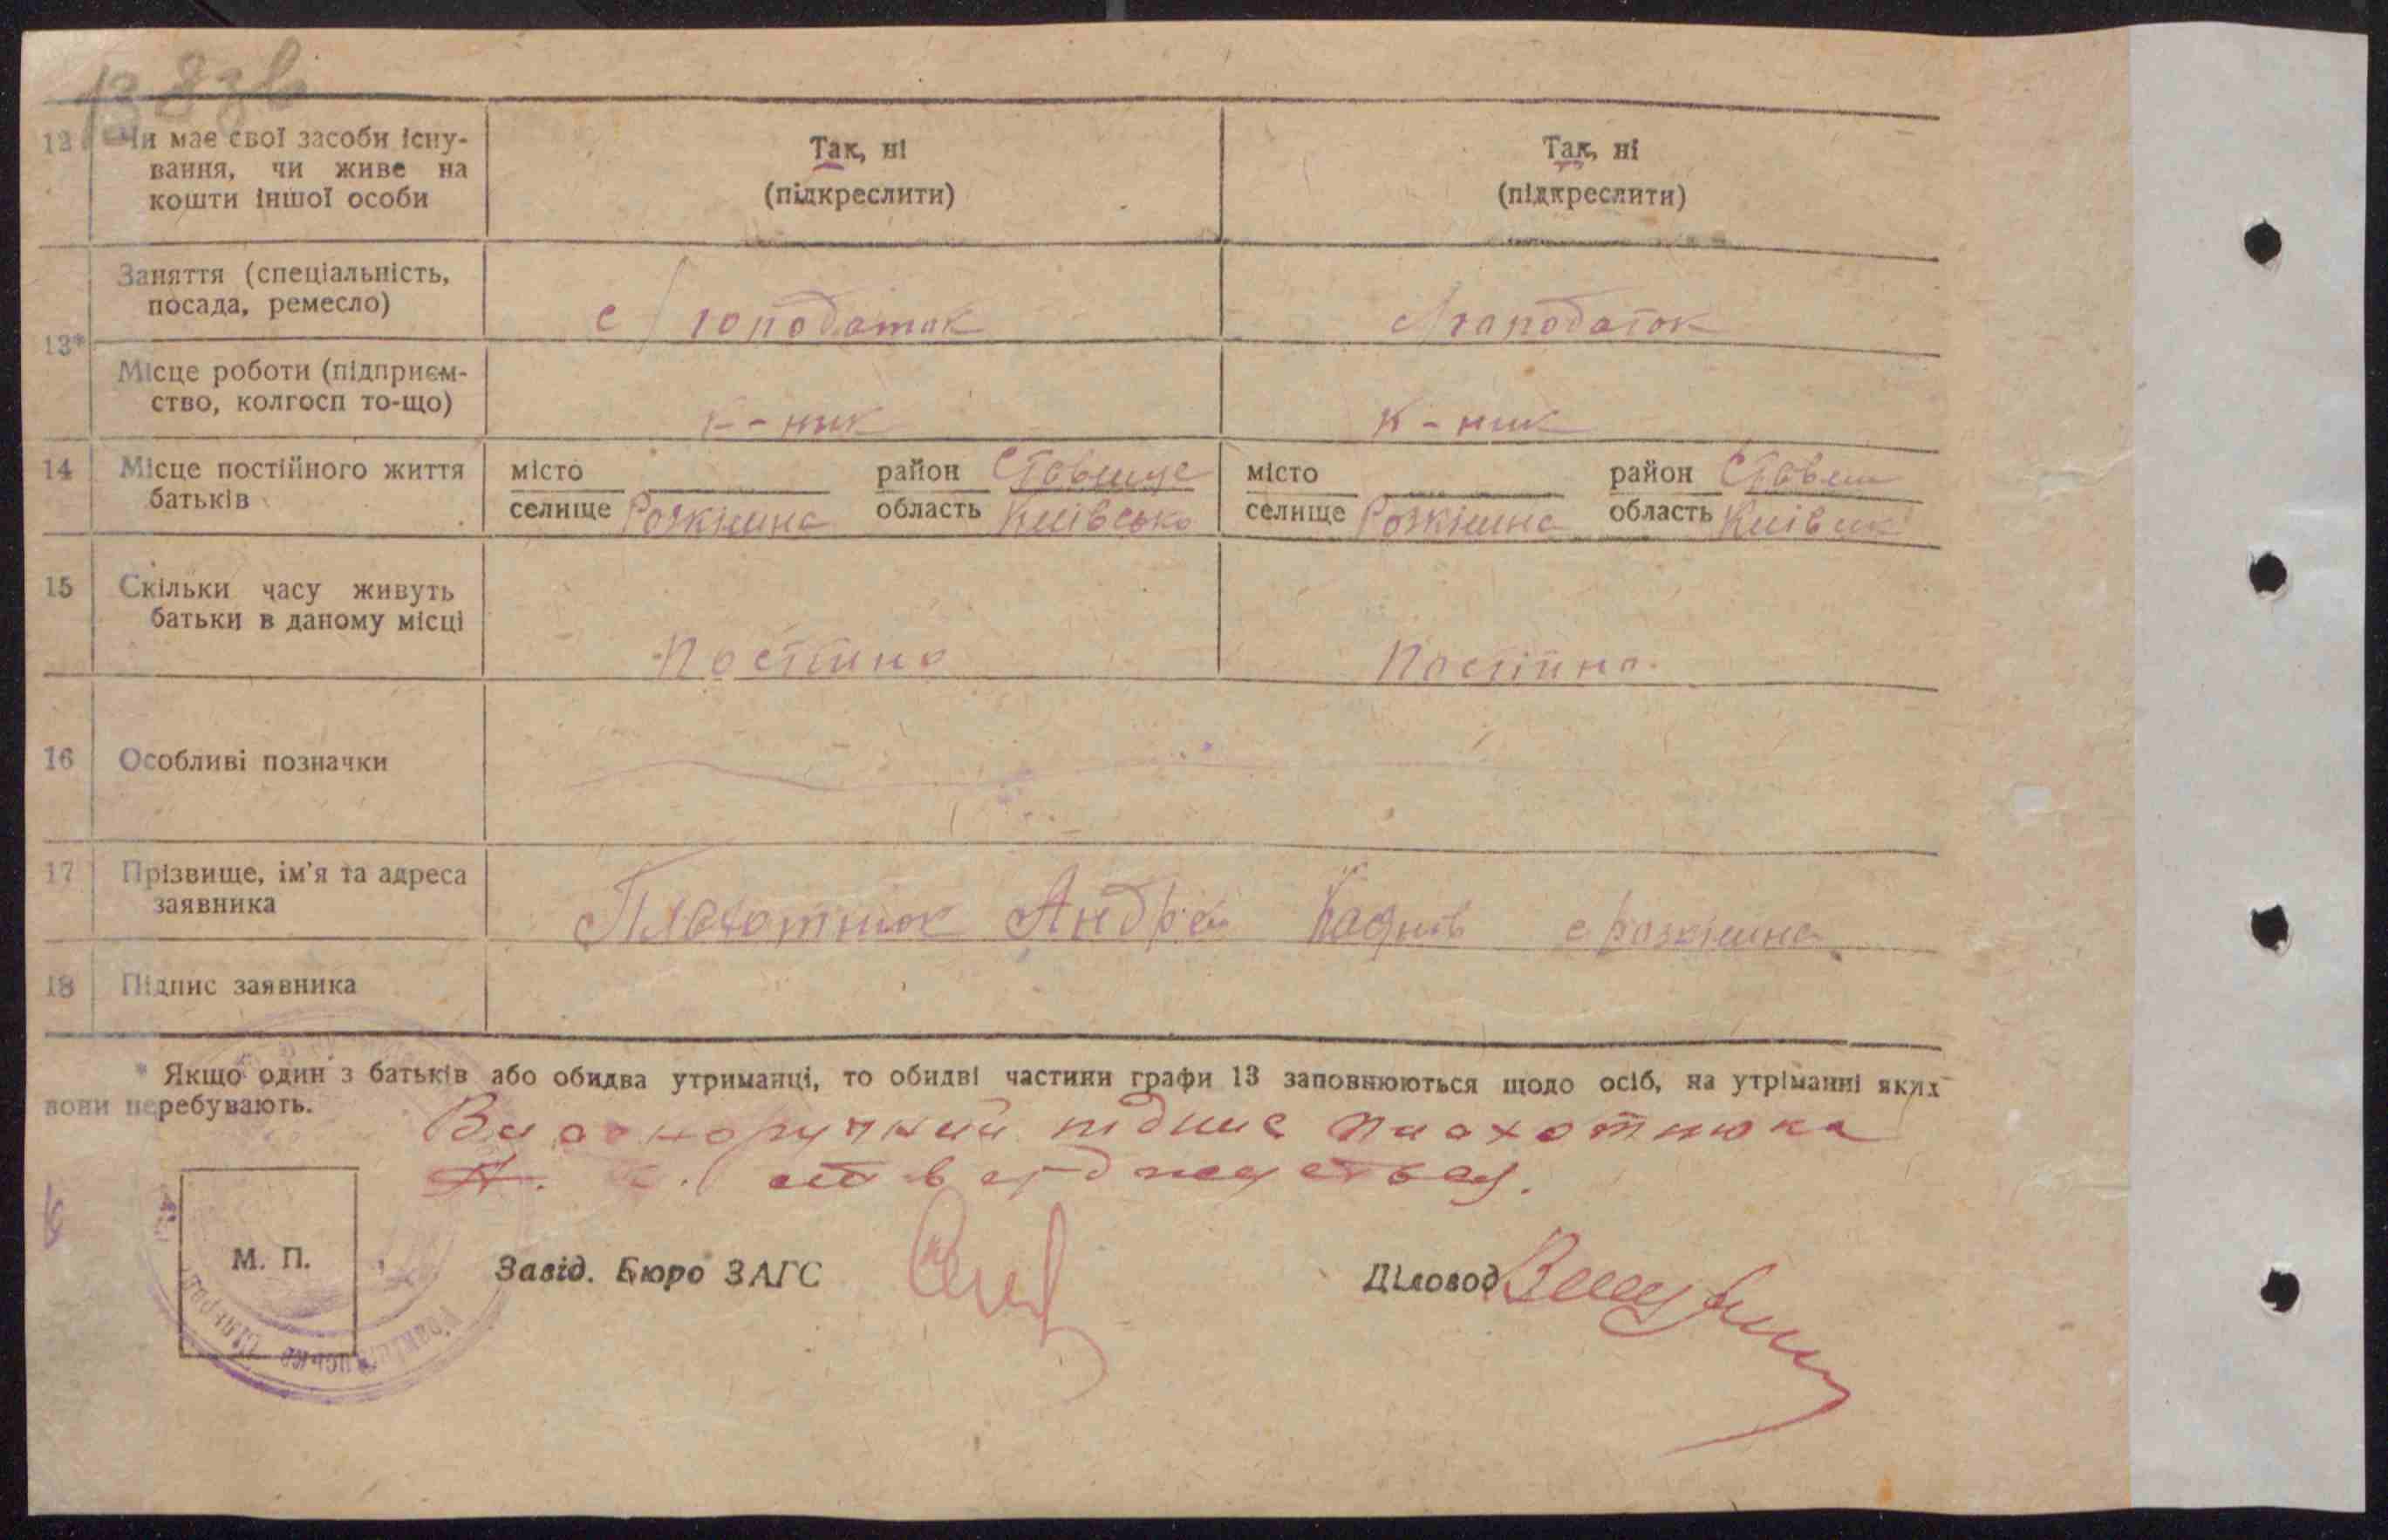 12 Чи має свої засоби існу-
вання, чи живе на
кошти іншої особи
Так, ні
(підкреслити)
Так, ні
(підкреслити)
13*
Заняття (спеціальність,
посада, ремесло)
Місце роботи (підприєм-
ство, колгосп то-що)
к-ник
к-ник
14 Місце постійного життя
батьків
місто район Ставище
селище Розкішна область Київсько
місто район Ставищ
селище Розкішна область
15 Скільки часу живуть
батьки в даному місці
Постійно
Постійно.
16 Особливі позначки
17 Прізвище, ім'я та адреса
заявника
Плахотнюк Андрей с Розкішна
18 Підпис заявника
* Якщо один з батьків або обидва утриманці, то обидві частини графи 13 заповнюються щодо осіб, на утріманні яких
вони перебувають.
Власноручний підпис Плахотнюка
А. стверджується.
М. П.
Завід. Бюро ЗАГС
Діловод